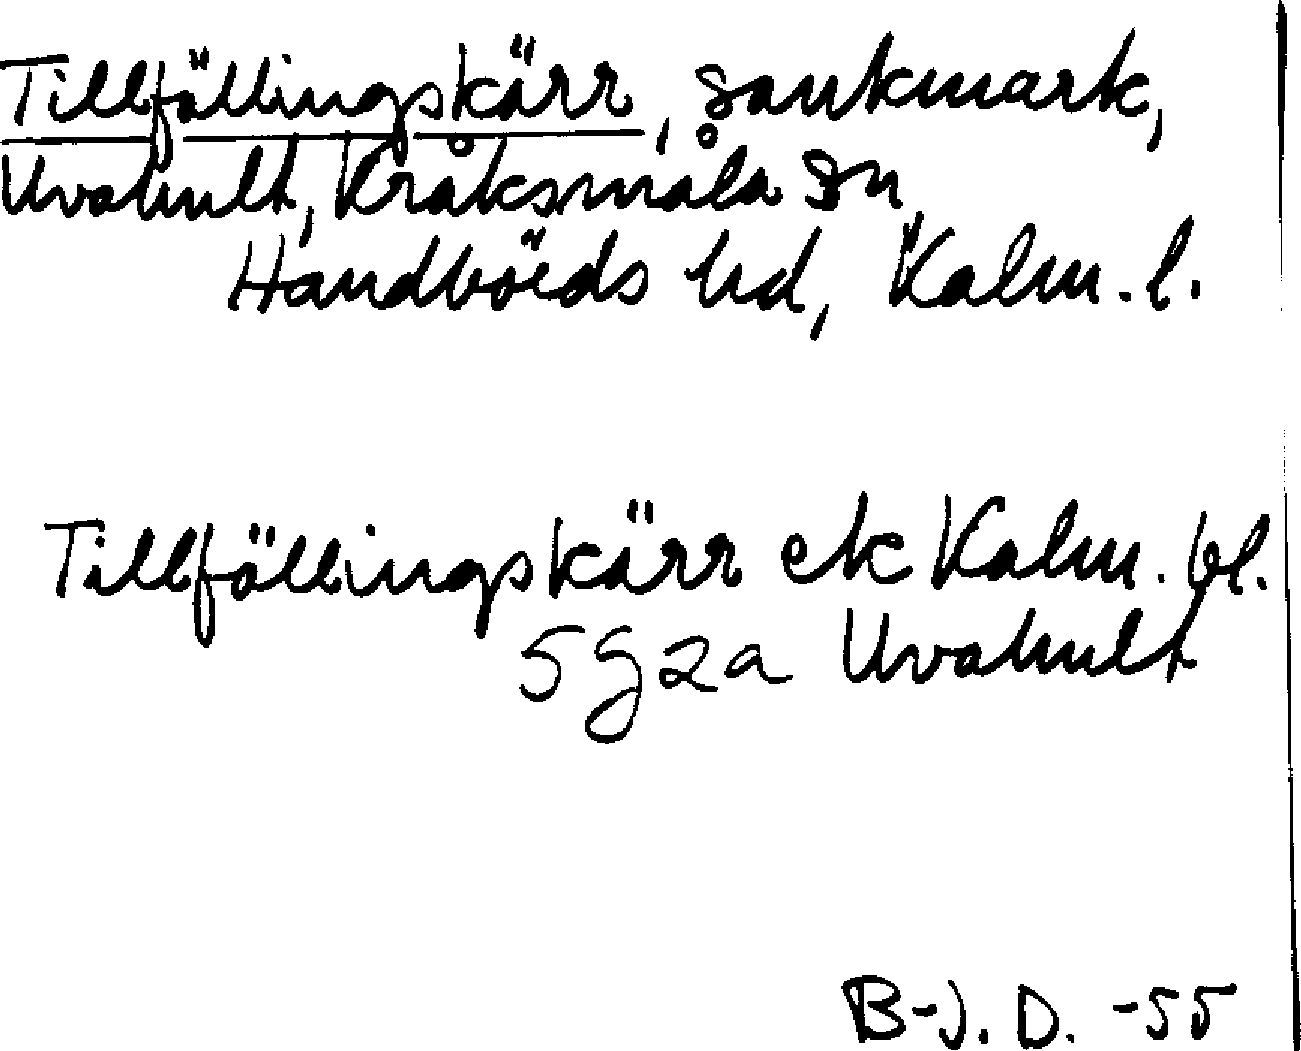 Tillföllingskärr, sankmark,
Uvahult, Kråksmåla sn
Handbörds hd, Kalm. l.
Tillföllingskärr ek Kalm. bl.
5g2a Uvahult
B-J. D. -55